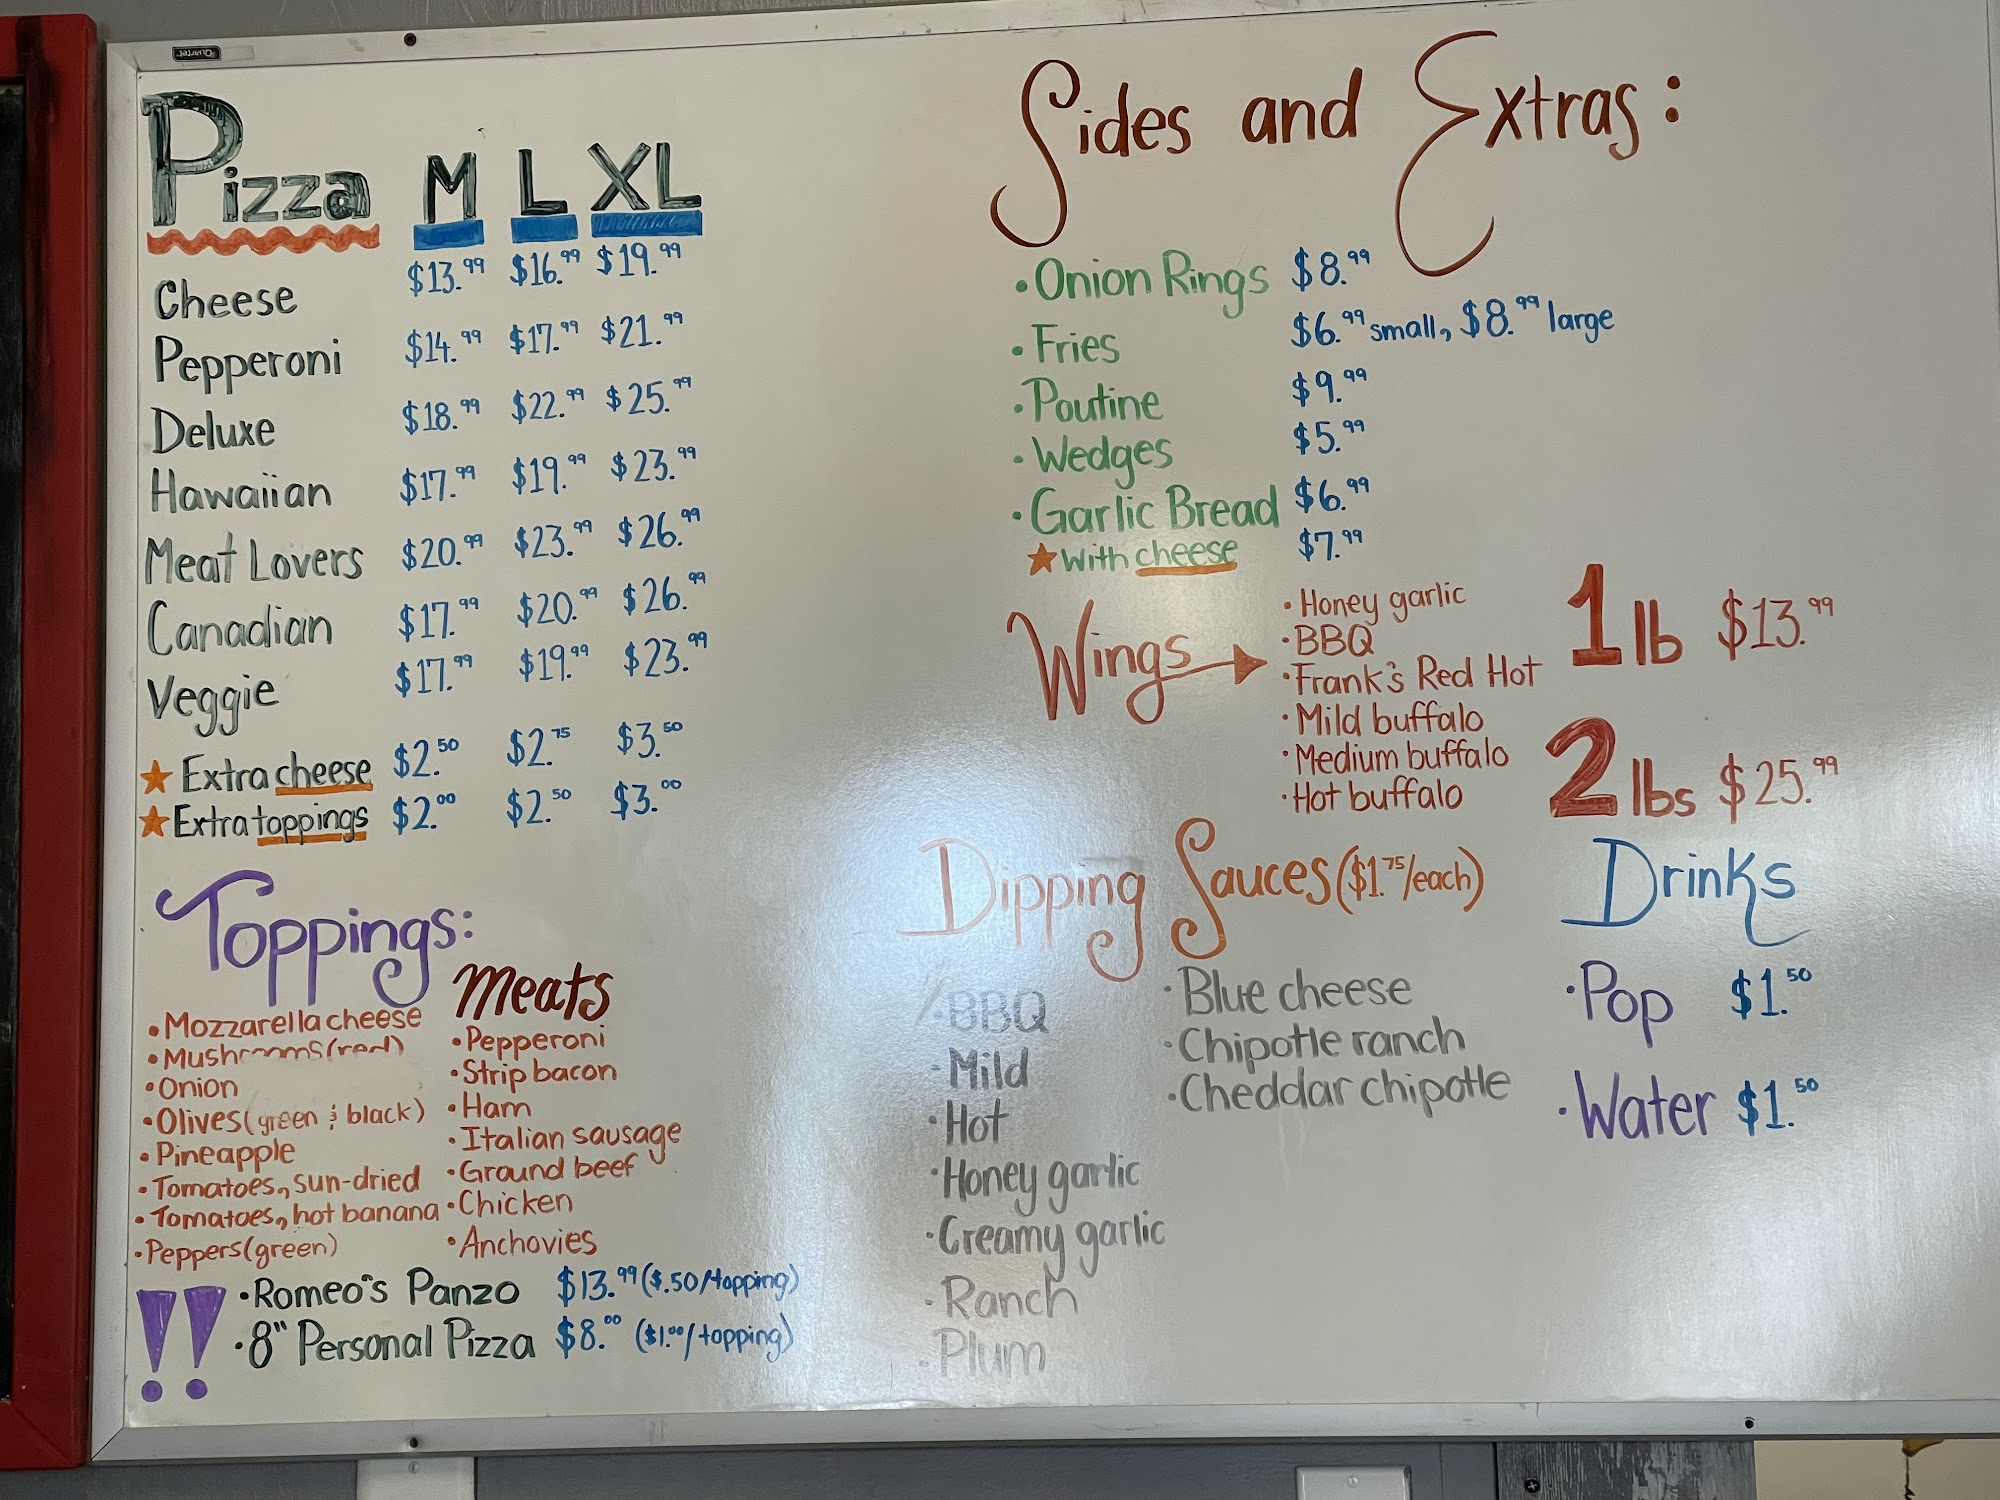 Quartet
Pizza M L XL
Cheese $13.99 $16.99 $19.99
Pepperoni $14.99 $17.99 $21.99
Deluxe $18.99 $22.99 $25.99
Hawaiian $17.99 $19.99 $23.99
Meat Lovers $20.99 $23.99 $26.99
Canadian $17.99 $20.99 $26.99
Veggie $17.99 $19.99 $23.99
★ Extra cheese $2.50 $2.75 $3.50
★ Extra toppings $2.00 $2.50 $3.00
Toppings:
• Mozzarella cheese
• Mushrooms (red)
• Onion
• Olives (green & black)
• Pineapple
• Tomatoes, sun-dried
• Tomatoes, hot banana
• Peppers (green)
Meats
• Pepperoni
• Strip bacon
• Ham
• Italian sausage
• Ground beef
• Chicken
• Anchovies
!! • Romeo's Panzo $13.99 ($.50/topping)
• 8" Personal Pizza $8.00 ($1.00/topping)
Sides and Extras:
• Onion Rings $8.99
• Fries $6.99 small, $8.99 large
• Poutine $9.99
• Wedges $5.99
• Garlic Bread $6.99
★ with cheese $7.99
Wings
• Honey garlic
• BBQ
• Frank's Red Hot
• Mild buffalo
• Medium buffalo
• Hot buffalo
1 lb $13.99
2 lbs $25.99
Dipping Sauces ($1.75/each)
• BBQ
• Mild
• Hot
• Honey garlic
• Creamy garlic
• Ranch
• Plum
• Blue cheese
• Chipotle ranch
• Cheddar chipotle
Drinks
• Pop $1.50
• Water $1.50